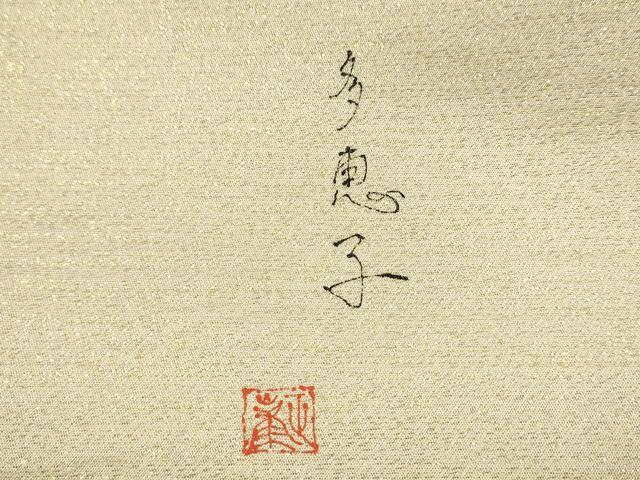 多恵子